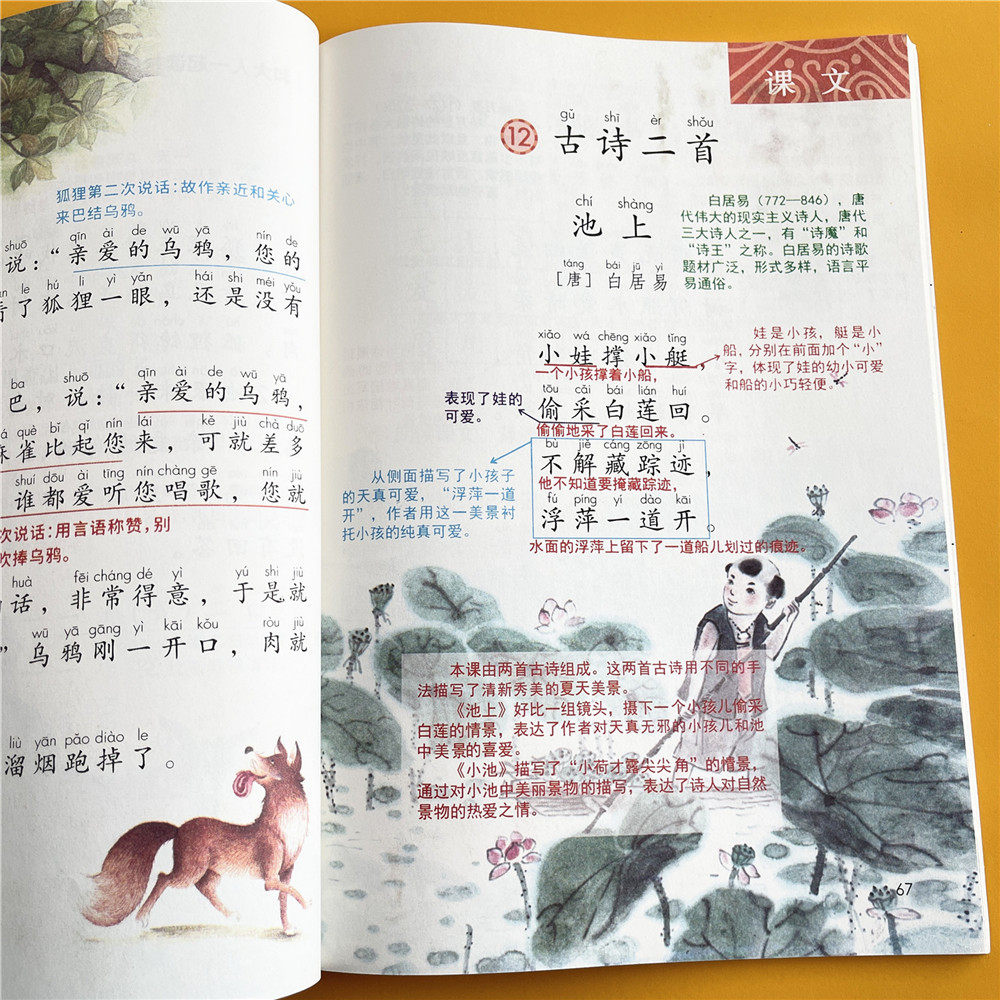 狐狸第二次说话：故作亲近和关心
来巴结乌鸦。
shuō qīn ài de wū yā nín de
说：“亲爱的乌鸦，您的
le hú li yì yǎn hái shi méi yǒu
了狐狸一眼，还是没有
ba shuō qīn ài de wū yā
巴，说：“亲爱的乌鸦，
què bǐ qǐ nín lái kě jiù chà duō
雀比起您来，可就差多
shuí dōu ài tīng nín chàng gē nín jiù
谁都爱听您唱歌，您就
次说话：用言语称赞，别
吹捧乌鸦。
huà fēi cháng dé yì yú shì jiù
话，非常得意，于是就
wū yā gāng yì kāi kǒu ròu jiù
”乌鸦刚一开口，肉就
liù yān pǎo diào le
溜烟跑掉了。
课文
gǔ shī èr shǒu
12 古诗二首
chí shàng
池上
táng bái jū yì
［唐］白居易
白居易（772—846），唐
代伟大的现实主义诗人，唐代
三大诗人之一，有“诗魔”和
“诗王”之称。白居易的诗歌
题材广泛，形式多样，语言平
易通俗。
xiǎo wá chēng xiǎo tǐng
小娃撑小艇，
一个小孩撑着小船，
娃是小孩，艇是小
船，分别在前面加个“小”
字，体现了娃的幼小可爱
和船的小巧轻便。
表现了娃的
可爱。
tōu cǎi bái lián huí
偷采白莲回。
偷偷地采了白莲回来。
bù jiě cáng zōng jì
不解藏踪迹，
他不知道要掩藏踪迹，
fú píng yí dào kāi
浮萍一道开。
水面的浮萍上留下了一道船儿划过的痕迹。
从侧面描写了小孩子
的天真可爱，“浮萍一道
开”，作者用这一美景衬
托小孩的纯真可爱。
本课由两首古诗组成。这两首古诗用不同的手
法描写了清新秀美的夏天美景。
《池上》好比一组镜头，摄下一个小孩儿偷采
白莲的情景，表达了作者对天真无邪的小孩儿和池
中美景的喜爱。
《小池》描写了“小荷才露尖尖角”的情景，
通过对小池中美丽景物的描写，表达了诗人对自然
景物的热爱之情。
67